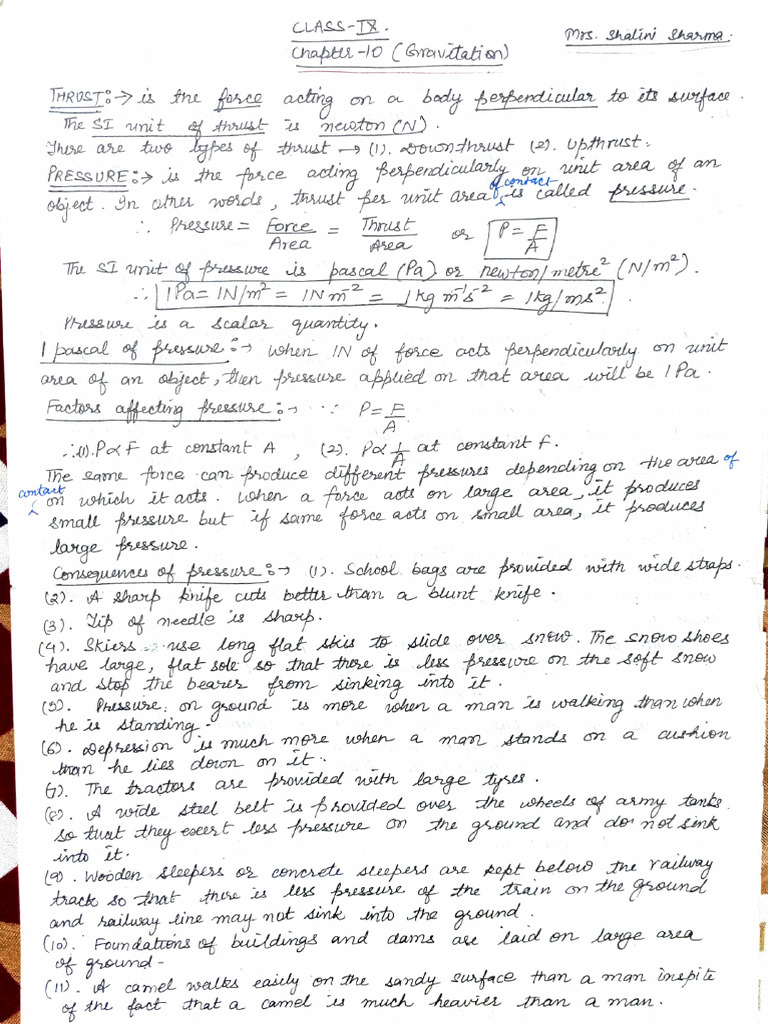 CLASS-IX.
Chapter-10 (Gravitation)
Mrs. Shalini Sharma.
THRUST:→ is the force acting on a body perpendicular to its surface.
The SI unit of thrust is newton (N).
There are two types of thrust → (1). Downthrust (2). Upthrust.
PRESSURE:→ is the force acting perpendicularly on unit area of an
object. In other words, thrust per unit area of contact is called pressure.
∴ Pressure = Force/Area = Thrust/Area or P = F/A
The SI unit of pressure is pascal (Pa) or newton/metre² (N/m²).
∴ 1Pa = 1N/m² = 1Nm⁻² = 1kg m⁻¹s⁻² = 1kg/ms².
Pressure is a scalar quantity.
1 pascal of pressure:→ when 1N of force acts perpendicularly on unit
area of an object, then pressure applied on that area will be 1Pa.
Factors affecting pressure:→ ∵ P = F/A
∴(1). P∝F at constant A, (2). P∝1/A at constant F.
The same force can produce different pressures depending on the area of
contact on which it acts. When a force acts on large area, it produces
small pressure but if same force acts on small area, it produces
large pressure.
Consequences of pressure:→ (1). School bags are provided with wide straps.
(2). A sharp knife cuts better than a blunt knife.
(3). Tip of needle is sharp.
(4). Skiers use long flat skis to slide over snow. The snow shoes
have large, flat sole so that there is less pressure on the soft snow
and stop the bearer from sinking into it.
(5). Pressure on ground is more when a man is walking than when
he is standing.
(6). Depression is much more when a man stands on a cushion
than he lies down on it.
(7). The tractors are provided with large tyres.
(8). A wide steel belt is provided over the wheels of army tanks
so that they exert less pressure on the ground and do not sink
into it.
(9). Wooden sleepers or concrete sleepers are kept below the railway
track so that there is less pressure of the train on the ground
and railway line may not sink into the ground.
(10). Foundations of buildings and dams are laid on large area
of ground.
(11). A camel walks easily on the sandy surface than a man inspite
of the fact that a camel is much heavier than a man.